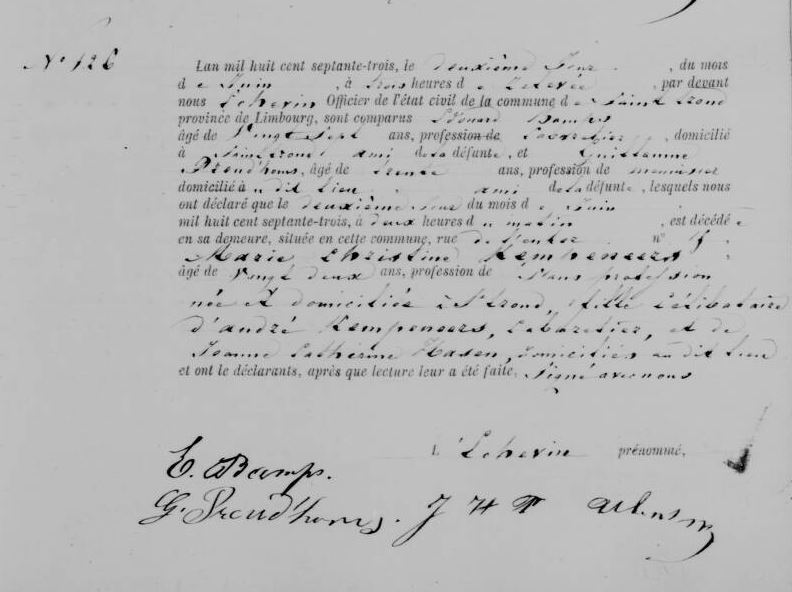 N° 126
Lan mil huit cent septante-trois, le deuxième Jour, du mois
de Juin, à trois heures de relevée, par devant
nous Echevin Officier de l'état civil de la commune de Saint Trond
province de Limbourg, sont comparus Edouard Bamps
âgé de Vingt Sept ans, profession de Cabaretier, domicilié
à Saint Trond, ami de la défunte, et Guillaume
Preud'homs, âgé de trente ans, profession de menuisier
domicilié à u dit lieu, ami de la défunte, lesquels nous
ont déclaré que le deuxième Jour du mois de Juin
mil huit cent septante-trois, à deux heures du matin, est décédée
en sa demeure, située en cette commune, rue de n°
Marie Christine Kempeneers
âgé de Vingt deux ans, profession de Sans profession
née et domiciliée à St trond, fille Célibataire
d'andré Kempeneers, Cabaretier, et de
Joanne Catherine Hasen, domiciliés au dit lieu
et ont le déclarants, après que lecture leur a été faite, Signé avec nous
L'Echevin prénommé,
E. Bamps.
G. Preud'homs. J H T